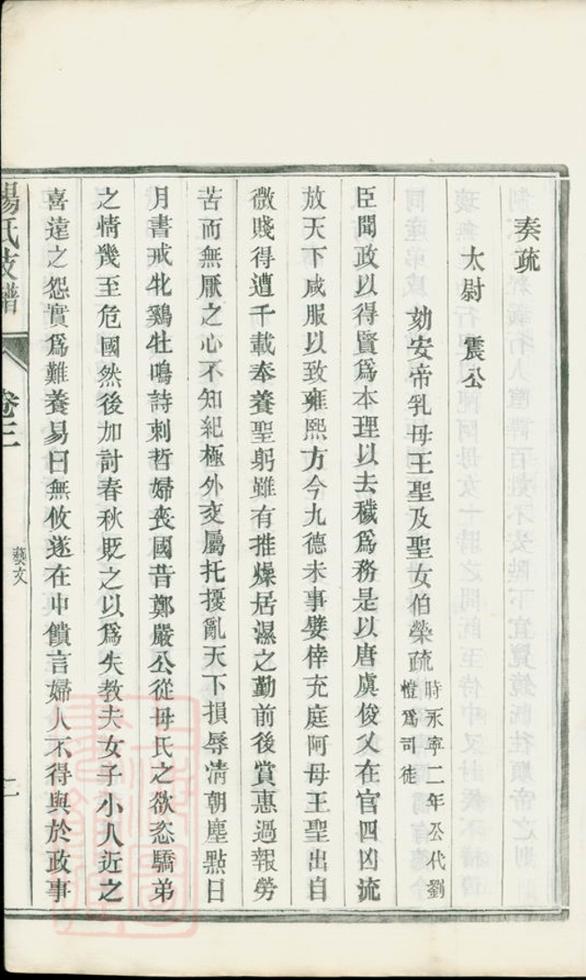 奏疏
太尉 震公
劾安帝乳母王聖及聖女伯榮疏 時永寧二年公代劉
愷爲司徒
臣聞政以得賢爲本理以去穢爲務是以唐虞俊乂在官四凶流
放天下咸服以致雍熙方今九德未事嬖倖充庭阿母王聖出自
微賤得遭千載奉養聖躬雖有推燥居濕之勤前後賞惠過報勞
苦而無厭之心不知紀極外交屬托擾亂天下損辱清朝塵點日
月書戒牝鷄牡鳴詩刺哲婦喪國昔鄭嚴公從母氏之欲恣驕弟
之情幾至危國然後加討春秋貶之以爲失教夫女子小人近之
喜遠之怨實爲難養易曰無攸遂在中饋言婦人不得與於政事
楊氏支譜 卷三 藝文